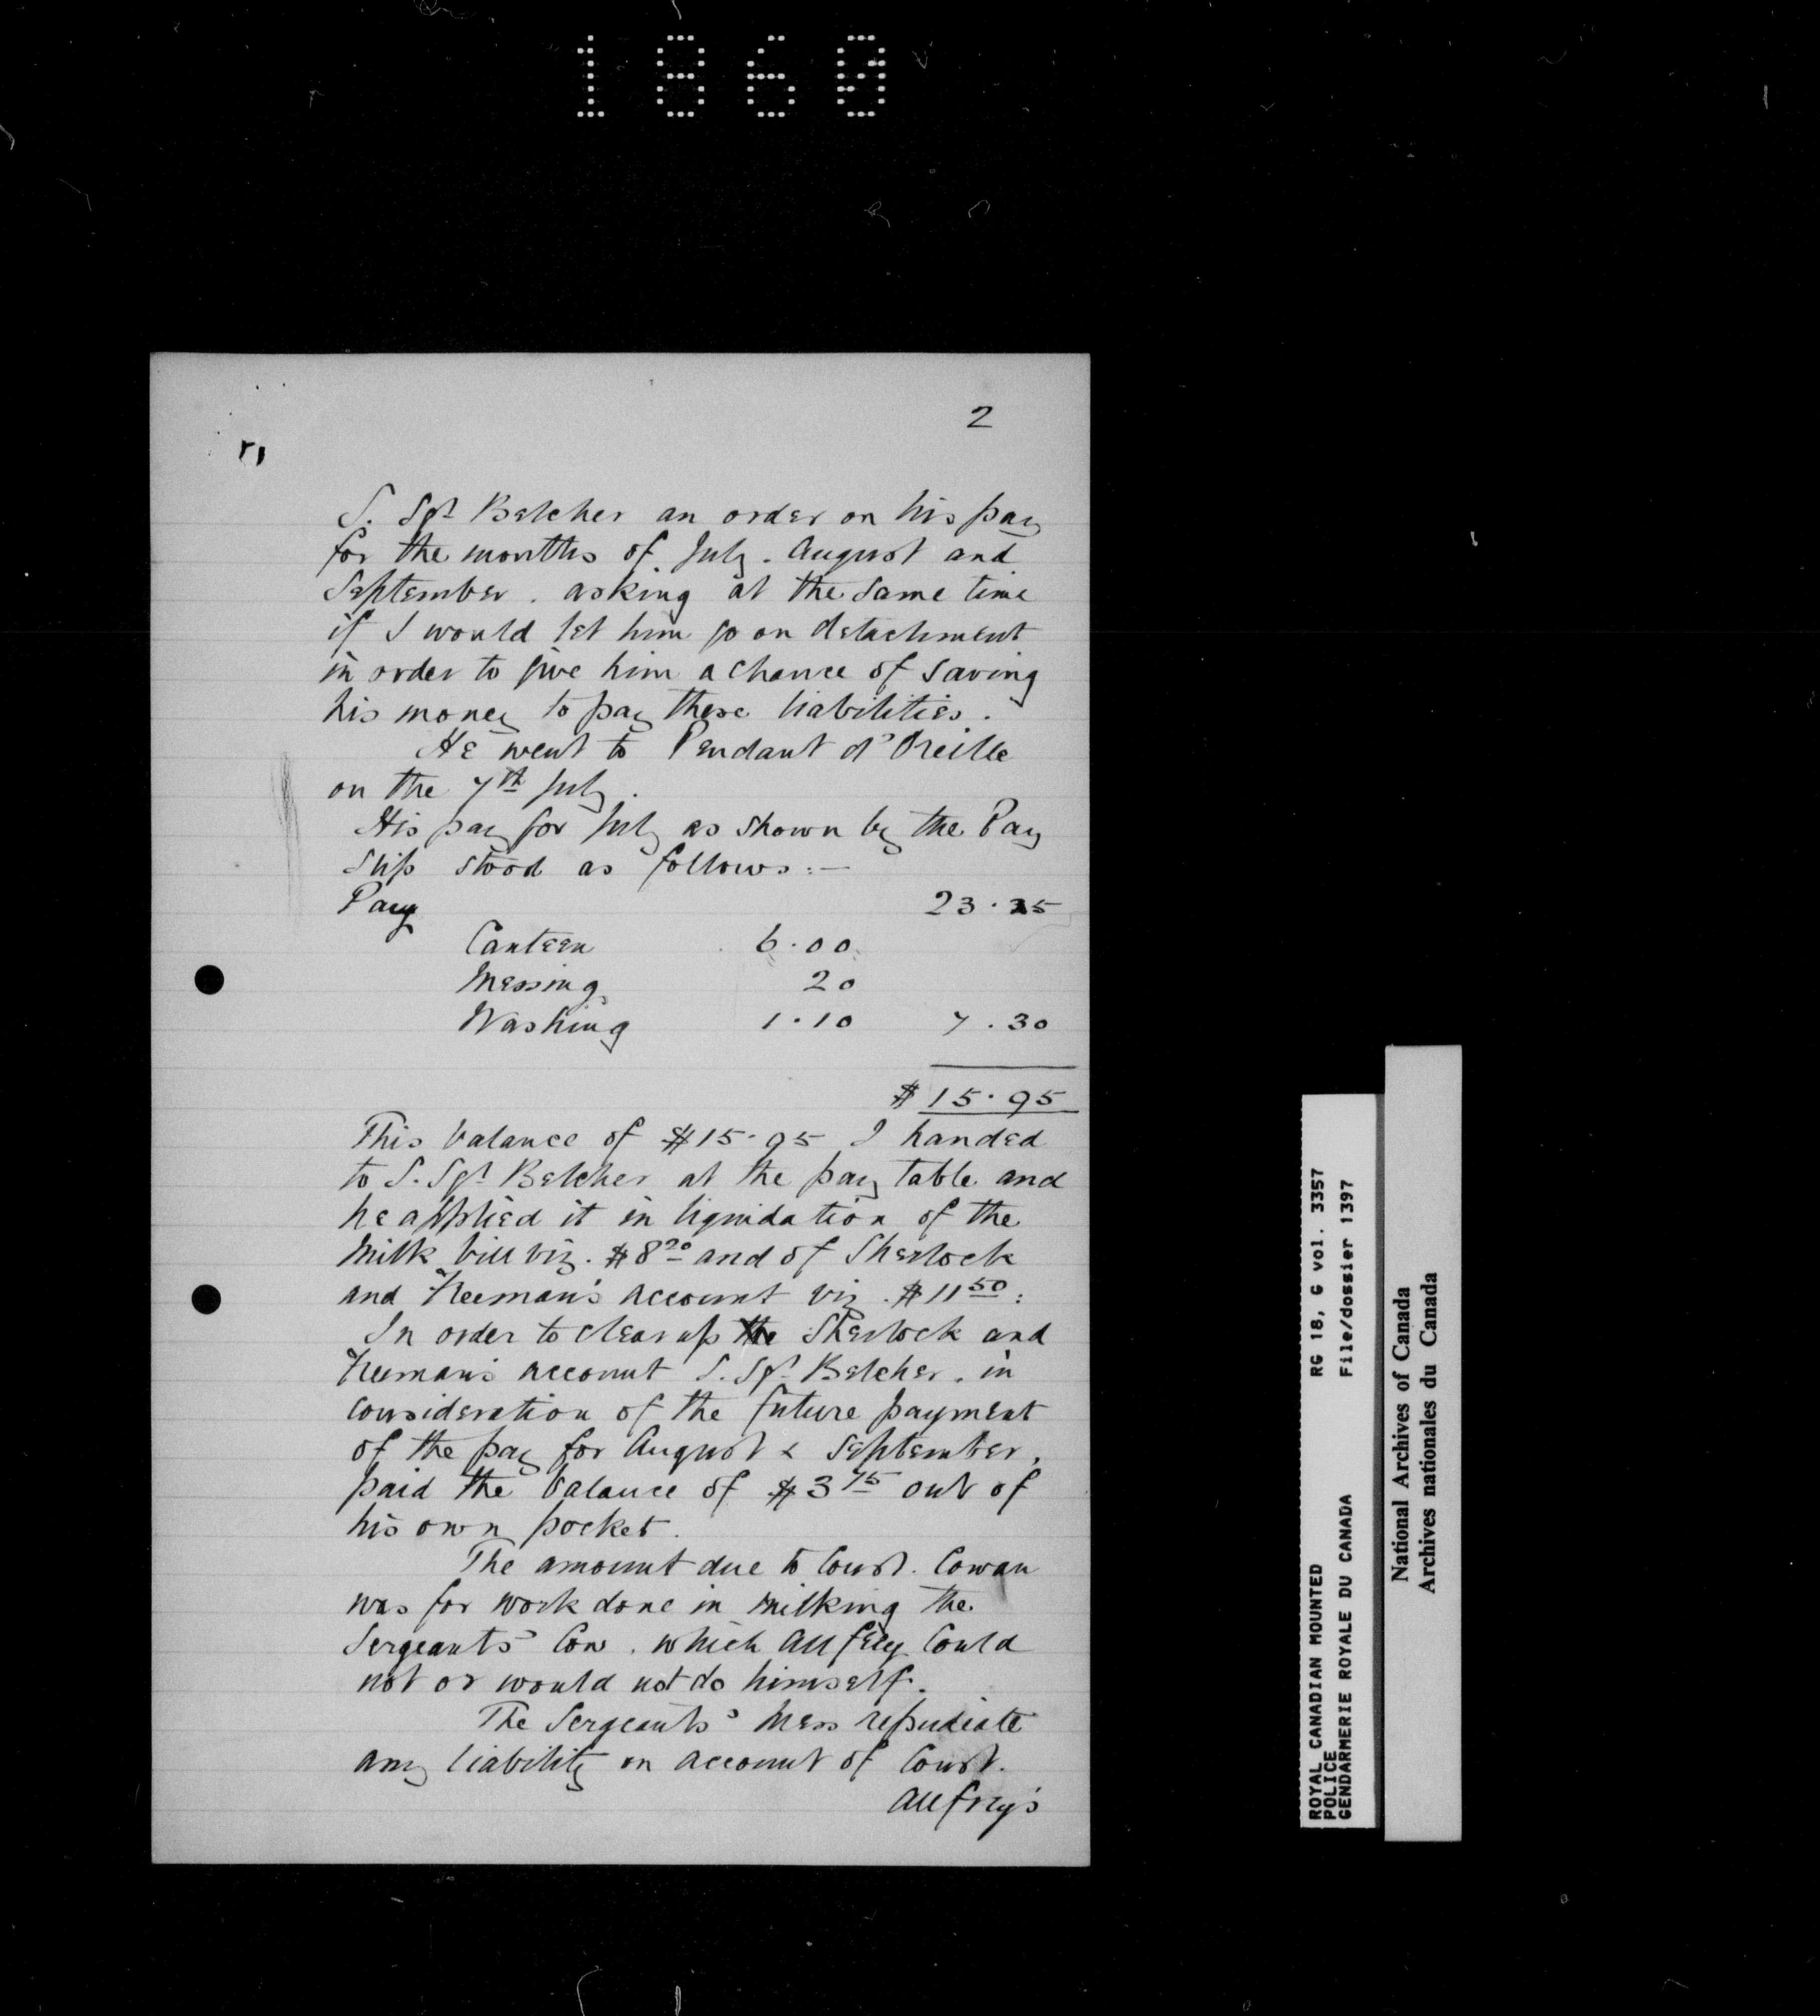 1860
2
S. Sgt Belcher an order on his pay
for the months of July. August and
September. asking at the same time
if I would let him go on detachment
in order to give him a chance of saving
his money to pay these liabilities.
He went to Pendant d'Oreille
on the 7th July.
His pay for July as shown by the Pay
Slip stood as follows:—
Pay 23.25
Canteen 6.00
Messing 20
Washing 1.10 7.30
$ 15.95
This balance of $15.95 I handed
to S. Sgt Belcher at the pay table and
he applied it in liquidation of the
Milk bill viz. $8 20 and of Sherlock
and Freeman's account viz. $11 50:
In order to clear up the Sherlock and
Freeman's account S. Sgt Belcher, in
consideration of the future payment
of the pay for August & September,
paid the balance of $3 75 out of
his own pocket.
The amount due to Const. Cowan
was for work done in milking the
Sergeants' Cow, which Allfrey could
not or would not do himself.
The Sergeants' Mess repudiate
any liability on account of Const.
Allfrey's
ROYAL CANADIAN MOUNTED RG 18, G vol. 3357
POLICE
GENDARMERIE ROYALE DU CANADA File/dossier 1397
National Archives of Canada
Archives nationales du Canada